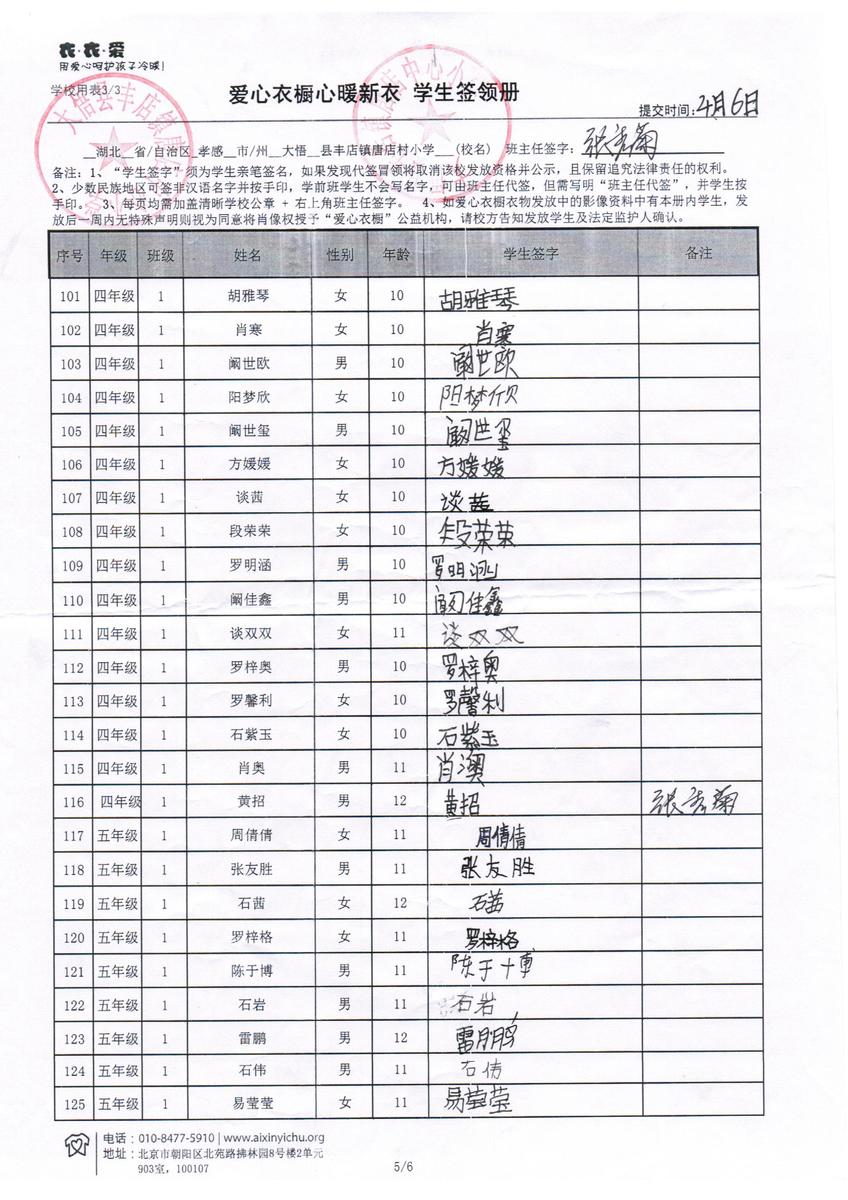 衣·衣·爱
用爱心呵护孩子冷暖!
学校用表3/3
爱心衣橱心暖新衣 学生签领册
提交时间:4月6日
__湖北__省/自治区_孝感__市/州__大悟__县丰店镇唐店村小学___(校名) 班主任签字:张秀菊
备注:1、“学生签字”须为学生亲笔签名,如果发现代签冒领将取消该校发放资格并公示,且保留追究法律责任的权利。
2、少数民族地区可签非汉语名字并按手印,学前班学生不会写名字,可由班主任代签,但需写明“班主任代签”,并学生按
手印。 3、每页均需加盖清晰学校公章 + 右上角班主任签字。 4、如爱心衣橱衣物发放中的影像资料中有本册内学生,发
放后一周内无特殊声明则视为同意将肖像权授予“爱心衣橱”公益机构,请校方告知发放学生及法定监护人确认。
序号 年级 班级 姓名 性别 年龄 学生签字 备注
101 四年级 1 胡雅琴 女 10 胡雅琴
102 四年级 1 肖寒 女 10 肖寒
103 四年级 1 阚世欧 男 10 阚世欧
104 四年级 1 阳梦欣 女 10 阳梦欣
105 四年级 1 阚世玺 男 10 阚世玺
106 四年级 1 方媛媛 女 10 方媛媛
107 四年级 1 谈茜 女 10 谈茜
108 四年级 1 段荣荣 女 10 段荣荣
109 四年级 1 罗明涵 男 10 罗明涵
110 四年级 1 阚佳鑫 男 10 阚佳鑫
111 四年级 1 谈双双 女 11 谈双双
112 四年级 1 罗梓奥 男 10 罗梓奥
113 四年级 1 罗馨利 女 10 罗馨利
114 四年级 1 石紫玉 女 10 石紫玉
115 四年级 1 肖奥 男 11 肖澳
116 四年级 1 黄招 男 12 黄招 张秀菊
117 五年级 1 周倩倩 女 11 周倩倩
118 五年级 1 张友胜 男 11 张友胜
119 五年级 1 石茜 女 12 石茜
120 五年级 1 罗梓格 女 11 罗梓格
121 五年级 1 陈于博 男 11 陈于博
122 五年级 1 石岩 男 11 石岩
123 五年级 1 雷鹏 男 12 雷鹏
124 五年级 1 石伟 男 11 石伟
125 五年级 1 易莹莹 女 11 易莹莹
电话:010-8477-5910 | www.aixinyichu.org
地址:北京市朝阳区北苑路拂林园8号楼2单元
903室,100107
5/6